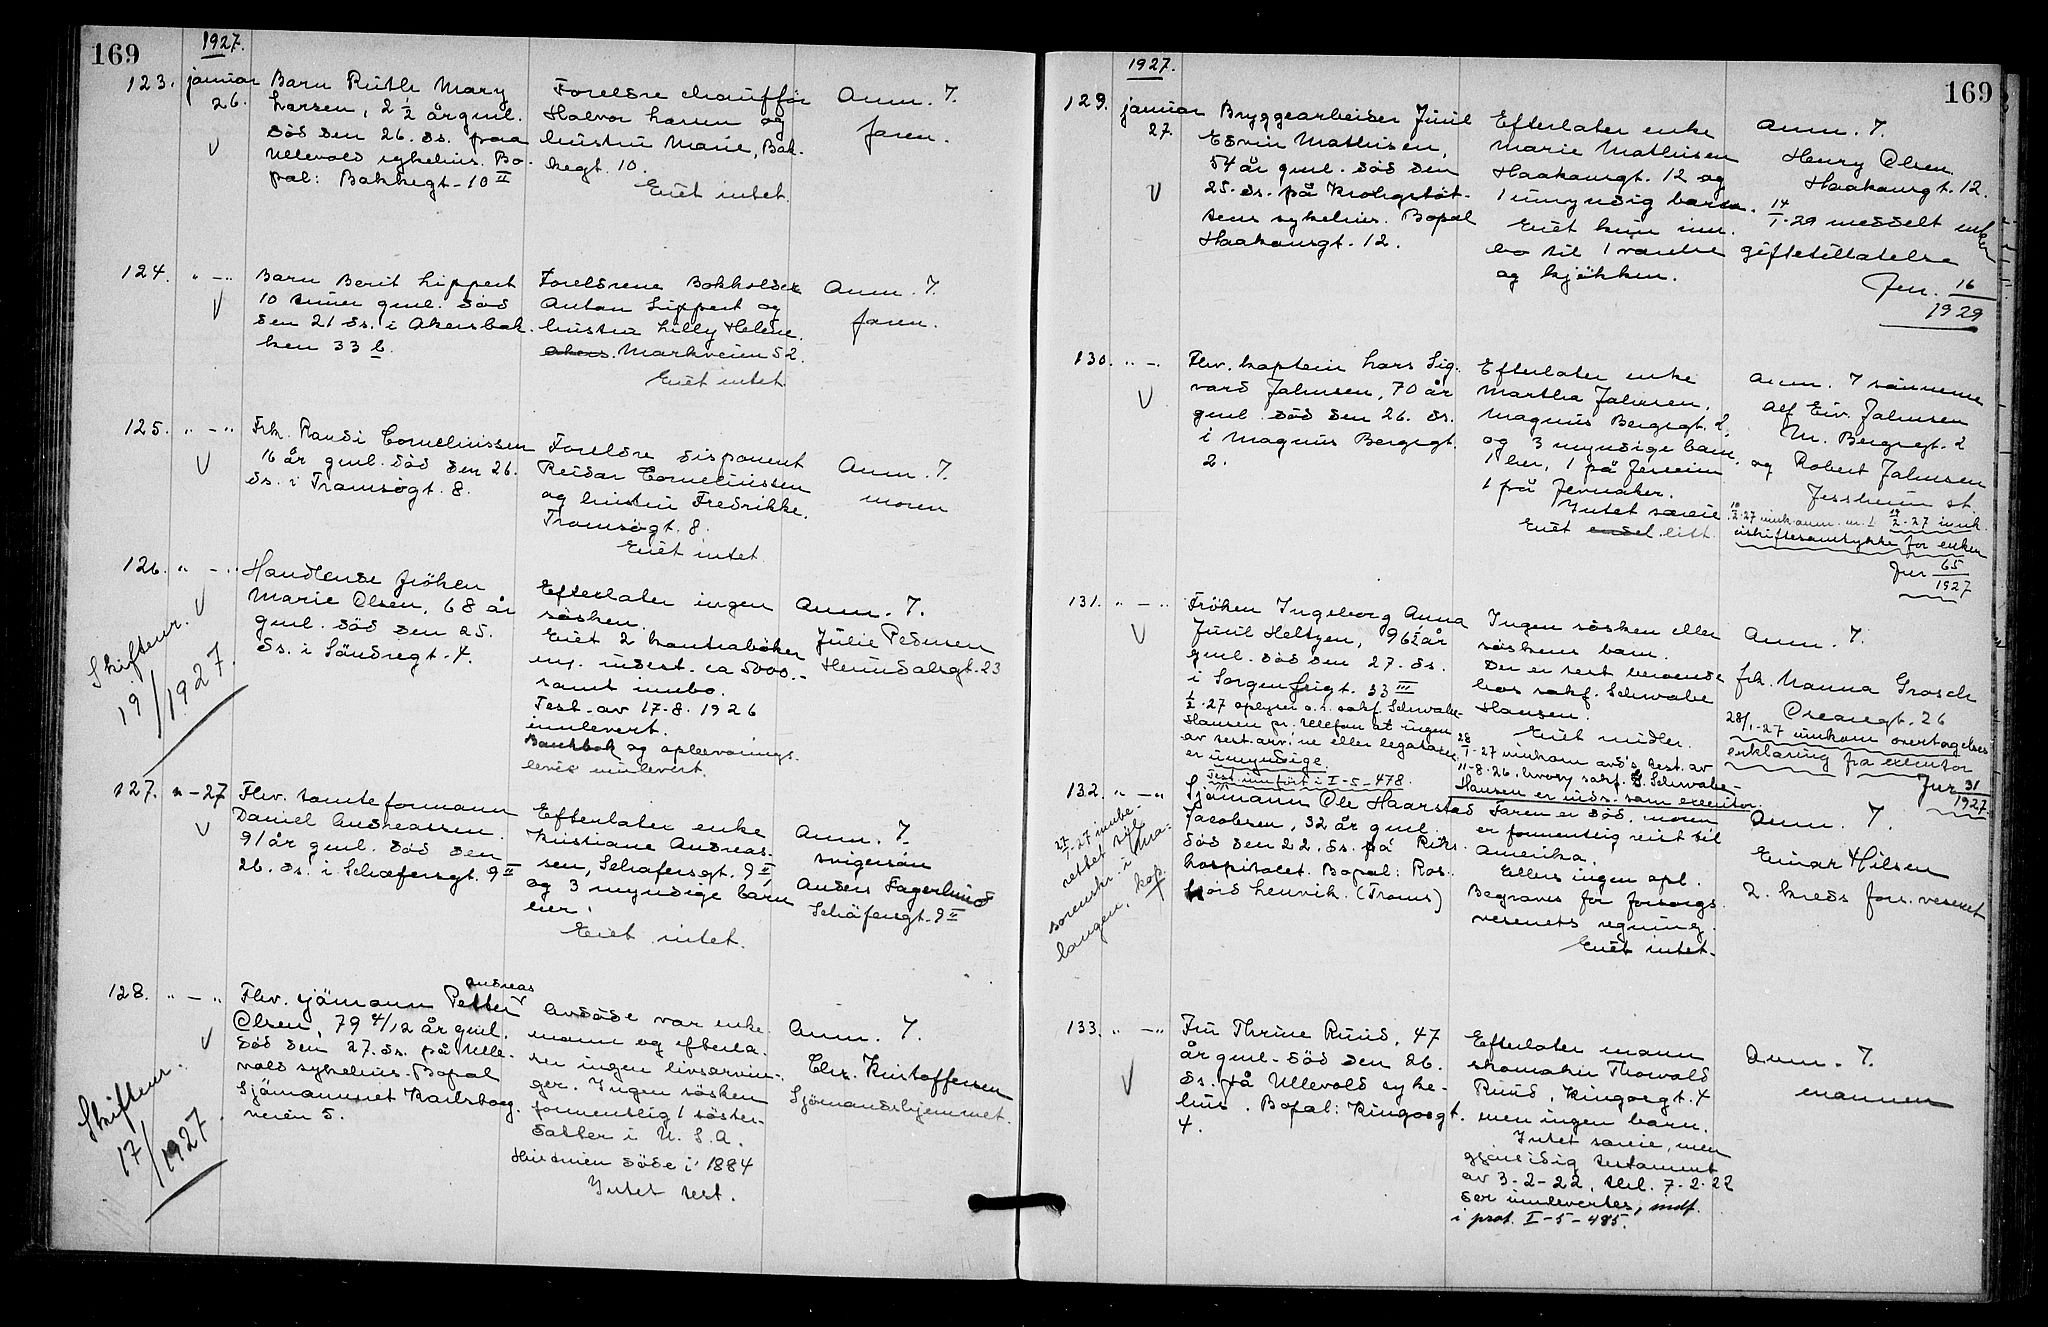 169
1927.
123. januar 26.
Barn Ruth Mary
Larsen, 2 1/2 år gml.
död den 26. ds. paa
Ullevold sykehus. Bo-
pæl: Bakkegt. 10 II
Foreldre chauffør
Halvor Larsen og
hustru Marie, Bak-
kegt. 10.
Eiet intet.
Anm. 7.
faren.
124. " — "
Barn Berit Lippert
10 timer gml. död
den 21 ds. i Akersbak-
ken 33 b.
Foreldrene Bokholder
Anton Lippert og
hustru Lilly Helene.
Markveien 52.
Eiet intet
Anm. 7.
faren.
125. " — "
Frk. Randi Corneliussen
16 år gml. död den 26.
ds. i Tromsøgt. 8.
Foreldre disponent
Reidar Corneliussen
og hustru Fredrikke.
Tromsøgt. 8.
Eiet intet
Anm. 7.
moren
126. " — "
Skifteur.
19/1927.
Handlende fröken
Marie Olsen, 68 år
gml. död den 25.
ds. i Söndregt. 4.
Efterlater ingen
søsken.
Eiet 2 kontrabøker
m. indest. ca 5000.-
samt innbo.
Test. av 17-8. 1926
innlevert.
Bankbok og opbevarings-
bevis innlevert.
Anm. 7.
Julie Pedersen
Herundalsgt. 23
127. " — 27
Fhv. tomteformann
Daniel Andreassen.
91 år gml. död den
26. ds. i Schæfersgt. 9 II
Efterlater enke
Kristiane Andreas-
sen, Schafersgt. 9 II,
og 3 myndige barn
her.
Eiet intet.
Anm. 7.
svigersön
Anders Fagerlund
Schäfersgt. 9 II
128. " — "
Skifteur.
17/1927
Andreas
Fhv. sjömann Petter
Olsen, 79 4/12 år gml.
död den 27. ds. på Ulle-
vold sykehus. Bopæl
Sjömannnet Karlsborg-
veien 5.
Avdöde var enke-
mann og efterla-
ter ingen livsarvin-
ger. Ingen søsken
formentlig 1 söster-
datter i U. S. A.
Hustruen döde i 1884
Intet test.
Anm. 7.
Chr. Kristoffersen
Sjömandshjemmet.
1927.
169
129. januar 27.
Bryggearbeider Juul
Edvin Mathisen,
54 år gml. död den
25. ds. på Krohgstøt-
tens sykehus. Bopæl
Haakonsgt. 12.
Efterlater enke
Marie Mathisen
Haakonsgt. 12 og
1 umyndig barn.
Eiet kun inn-
bo til 1 værelse
og kjøkken.
Anm. 7.
Henry Olsen
Haakonsgt. 12.
14/1-29 meddelt enken
giftetillatelse
Jnr. 16/1929
130. " — "
Fhv. kaptein Lars Sig-
vard Johnsen, 70 år
gml. död den 26. ds.
i Magnus Bergsgt.
2.
Efterlater enke
Martha Johnsen,
Magnus Bergsgt. 2,
og 3 myndige barn,
1 her, 1 på Jessheim
1 på Jevnaker.
Intet særeie
Eiet litt
Anm. 7 sönnerne
Alf Eiv. Johnsen
M. Bergsgt. 2
og Robert Johnsen
Jessheim st.
10/2-27 innk. anm. 14/2-27 innk.
uskiftesamtykke for enken
Jnr 65/1927
131. " — "
Fröken Ingeborg Anna
Juul Heltzen, 96 1/2 år
gml. död den 27. ds.
i Sorgenfrigt. 33 III
1/2-27 oplyser o.r. sakf. Schwabe-
Hansen pr. telefon at ingen
av test. arv.ne eller legatarer
er umyndige.
Test. innført i I-5-478.
Ingen søsken eller
søskens barn.
Der er test. beroende
hos sakf. Schwabe
Hansen.
Eiet midler.
28/1-27 innkom avd's test. av
11-8-26, hvorav sakf. G. Schwabe-
Hansen er inds. som executor.
Anm. 7.
frk. Nanna Grosch
Oscarsgt. 26
28/1-27 innkom overtagelses-
erklæring fra executor
Jnr 31/1927
132. " — "
27/1-27 innbe-
rettet til
sorenskr. i Ma-
langen, kop.
Sjömann Ole Haarstad
Jacobsen, 32 år gml.
död den 22. ds. på Riks-
hospitalet. Bopæl: Ros-
fjord Lenvik. (Troms)
Faren er död, moren
er formentlig reist til
Amerika.
Ellers ingen opl.
Begraves for forsorgs-
vesenets regning.
Eiet intet.
Anm. 7.
Einar Nilsen
2. kreds fors. vesenet
133. " — "
Fru Thrine Ruud, 47
år gml. död den 26.
ds. på Ullevold syke-
hus. Bopæl: Kingosgt.
4.
Efterlater mann
skomaker Thorvald
Ruud, Kingosgt. 4
men ingen barn.
Intet særeie, men
gjensidig testament
av 3-2-22, tl. 7-2-22
der innlevertes, indf.
i prot. I-5-485.
Anm. 7.
mannen